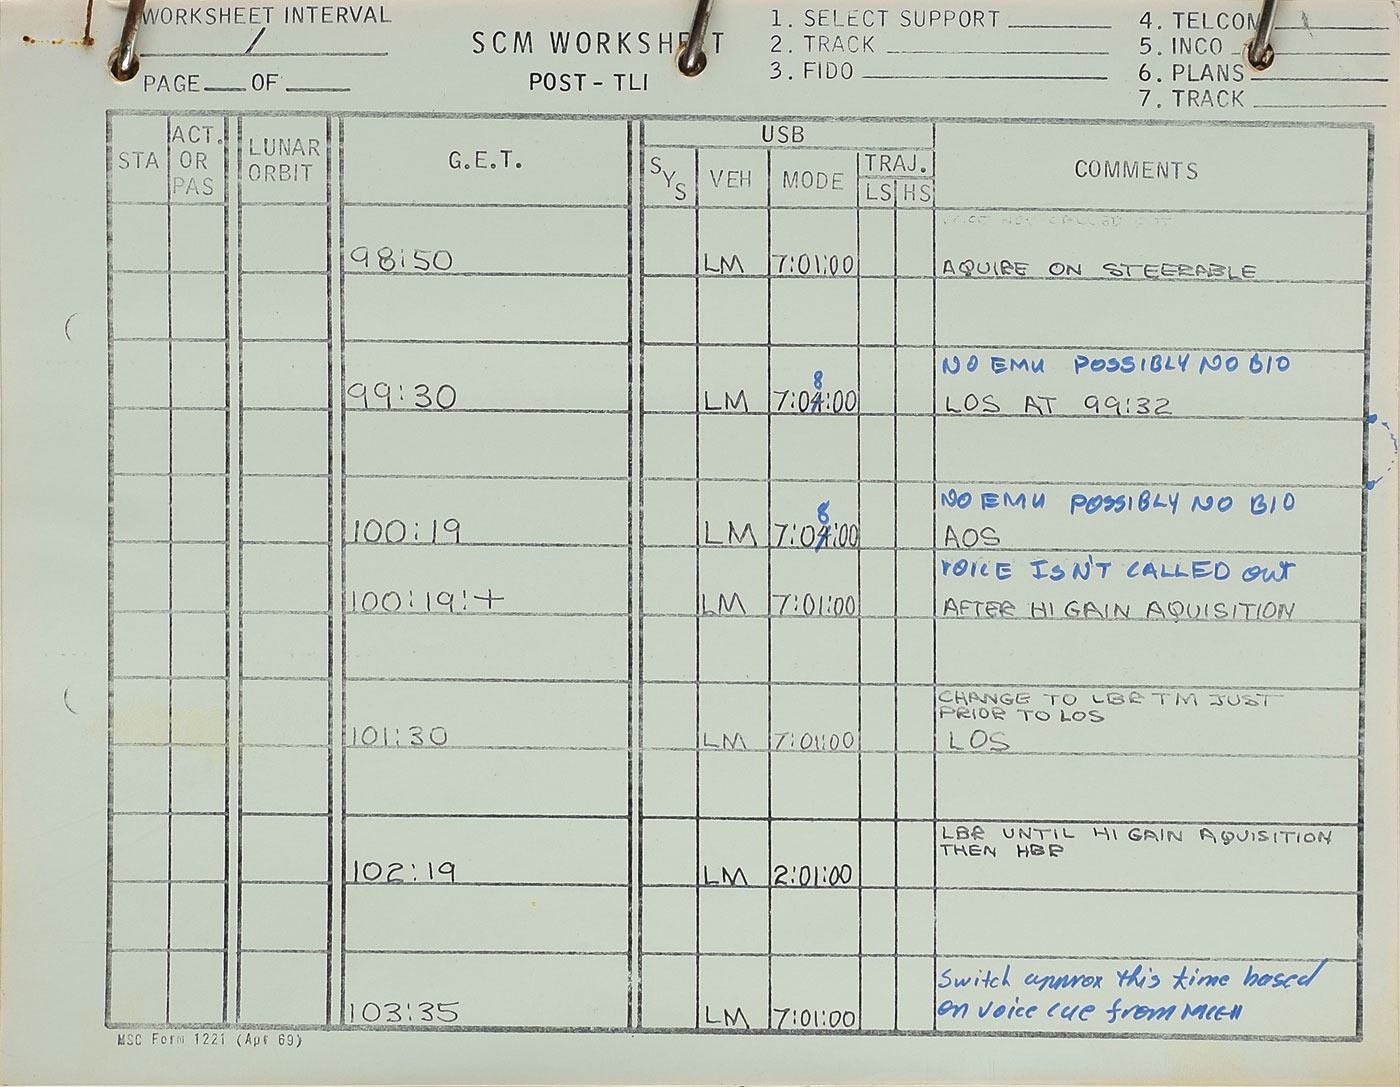 WORKSHEET INTERVAL
/
PAGE OF
SCM WORKSHEET
POST-TLI
1. SELECT SUPPORT
2. TRACK
3. FIDO
4. TELCOM
5. INCO
6. PLANS
7. TRACK
STA
ACT. OR PAS
LUNAR ORBIT
G.E.T.
USB
SYS
VEH
MODE
TRAJ.
LS HS
COMMENTS
98:50 LM 7:01:00 AQUIRE ON STEERABLE
NO EMU POSSIBLY NO BIO
8
99:30 LM 7:04:00 LOS AT 99:32
NO EMU POSSIBLY NO BIO
8
100:19 LM 7:04:00 AOS
VOICE ISN'T CALLED OUT
100:19:+ LM 7:01:00 AFTER HI GAIN AQUISITION
CHANGE TO LBR TM JUST
PRIOR TO LOS
101:30 LM 7:01:00 LOS
LBR UNTIL HI GAIN AQUISITION
THEN HBR
102:19 LM 2:01:00
Switch approx this time based
on voice cue from MCCH
103:35 LM 7:01:00
MSC Form 1221 (Apr 69)